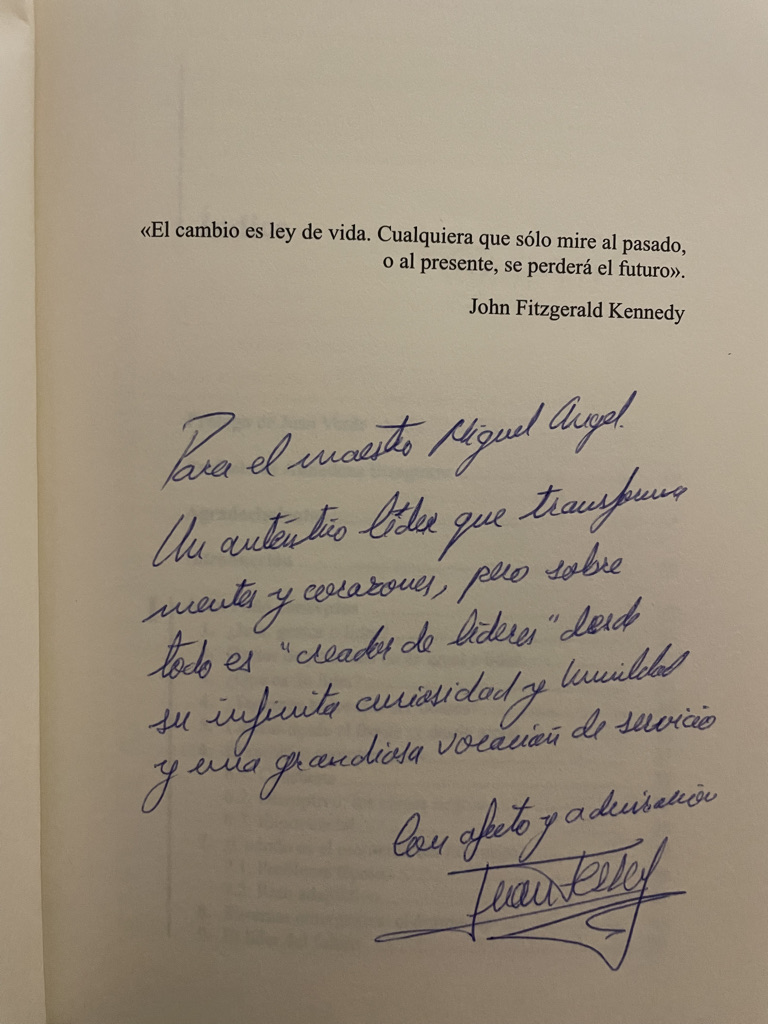 «El cambio es ley de vida. Cualquiera que sólo mire al pasado,
o al presente, se perderá el futuro».
John Fitzgerald Kennedy
Para el maestro Miguel Angel.
Un auténtico líder que transforma
mentes y corazones, pero sobre
todo es "creador de líderes" desde
su infinita curiosidad y humildad
y una grandiosa vocación de servicio
Con afecto y admiración
Juan